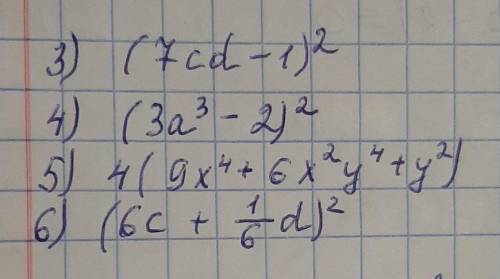 3) (7cd - 1)²
4) (3a³ - 2)²
5) 4(9x⁴ + 6x²y⁴ + y²)
6) (6c + 1/6 d)²